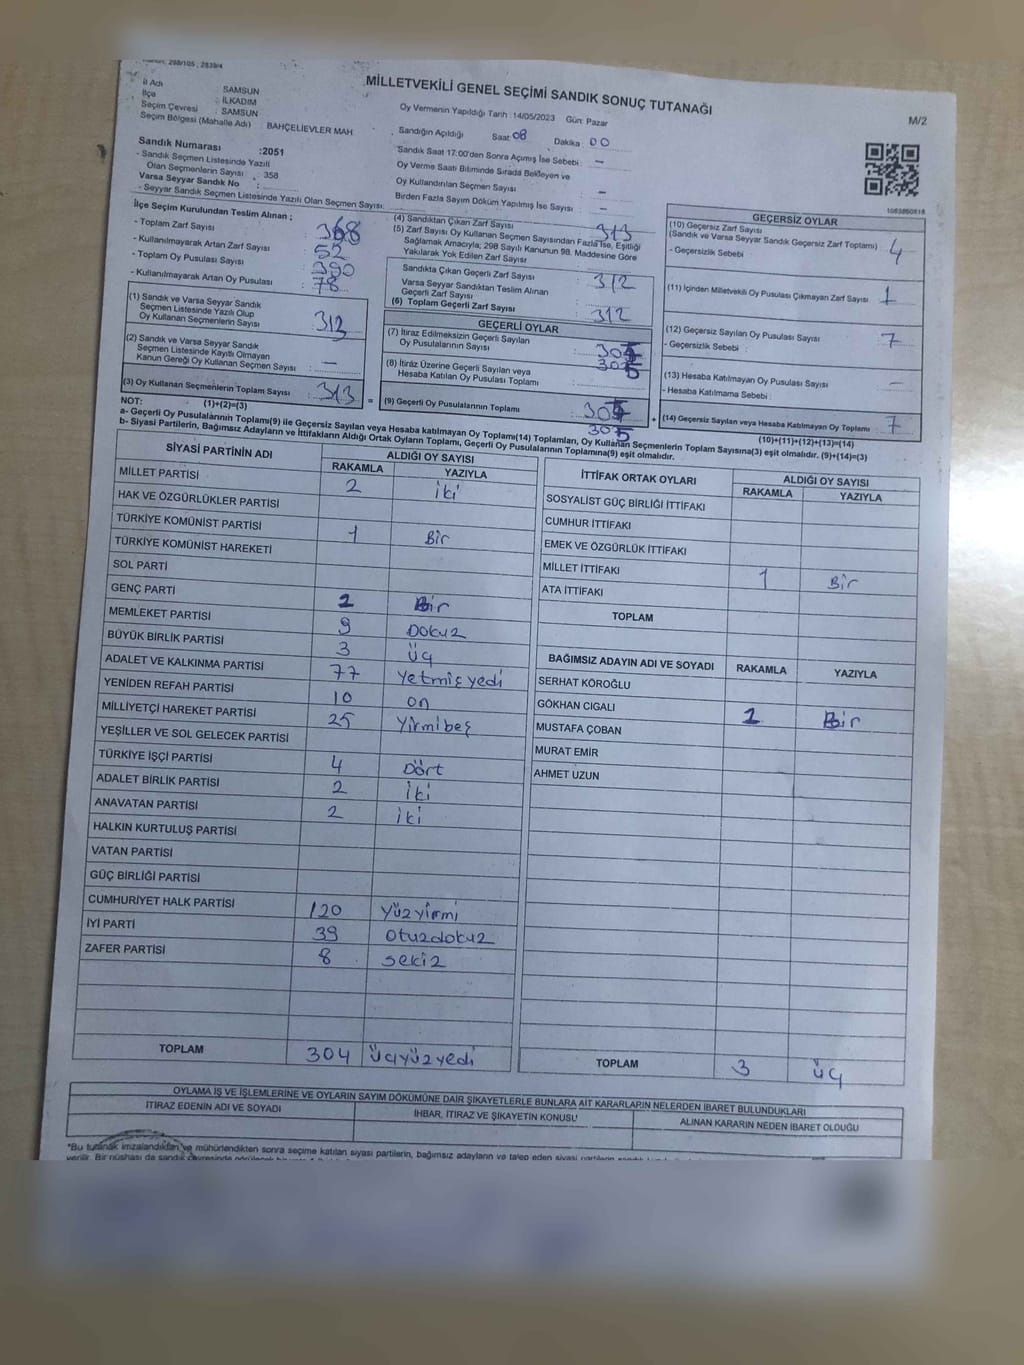 298/105, 2839/4
MİLLETVEKİLİ GENEL SEÇİMİ SANDIK SONUÇ TUTANAĞI
M/2
İl Adı : SAMSUN
İlçe : İLKADIM
Seçim Çevresi : SAMSUN
Seçim Bölgesi (Mahalle Adı) : BAHÇELİEVLER MAH
Sandık Numarası :2051
- Sandık Seçmen Listesinde Yazılı
Olan Seçmenlerin Sayısı : 358
Varsa Seyyar Sandık No :
- Seyyar Sandık Seçmen Listesinde Yazılı Olan Seçmen Sayısı:
Oy Vermenin Yapıldığı Tarih : 14/05/2023 Gün: Pazar
Sandığın Açıldığı Saat: 08 Dakika : 00
Sandık Saat 17:00'den Sonra Açımış İse Sebebi : -
Oy Verme Saati Bitiminde Sırada Bekleyen ve
Oy Kullandırılan Seçmen Sayısı : -
Birden Fazla Sayım Döküm Yapılmış İse Sayısı : -
1083850818
İlçe Seçim Kurulundan Teslim Alınan ;
- Toplam Zarf Sayısı : 368
- Kullanılmayarak Artan Zarf Sayısı : 52
- Toplam Oy Pusulası Sayısı : 390
- Kullanılmayarak Artan Oy Pusulası : 78
(1) Sandık ve Varsa Seyyar Sandık
Seçmen Listesinde Yazılı Olup
Oy Kullanan Seçmenlerin Sayısı : 313
(2) Sandık ve Varsa Seyyar Sandık
Seçmen Listesinde Kayıtlı Olmayan
Kanun Gereği Oy Kullanan Seçmen Sayısı : -
(3) Oy Kullanan Seçmenlerin Toplam Sayısı : 313
(1)+(2)=(3)
(4) Sandıktan Çıkan Zarf Sayısı : 313
(5) Zarf Sayısı Oy Kullanan Seçmen Sayısından Fazla İse, Eşitliği
Sağlamak Amacıyla, 298 Sayılı Kanunun 98. Maddesine Göre
Yakılarak Yok Edilen Zarf Sayısı :
Sandıkta Çıkan Geçerli Zarf Sayısı : 312
Varsa Seyyar Sandıktan Teslim Alınan
Geçerli Zarf Sayısı :
(6) Toplam Geçerli Zarf Sayısı : 312
GEÇERLİ OYLAR
(7) İtiraz Edilmeksizin Geçerli Sayılan
Oy Pusulalarının Sayısı : 305
(8) İtiraz Üzerine Geçerli Sayılan veya
Hesaba Katılan Oy Pusulası Toplamı : 305
(9) Geçerli Oy Pusulalarının Toplamı : 305
305
GEÇERSİZ OYLAR
(10) Geçersiz Zarf Sayısı
(Sandık ve Varsa Seyyar Sandık Geçersiz Zarf Toplamı) : 4
- Geçersizlik Sebebi :
(11) İçinden Milletvekili Oy Pusulası Çıkmayan Zarf Sayısı : 1
(12) Geçersiz Sayılan Oy Pusulası Sayısı : 7
- Geçersizlik Sebebi :
(13) Hesaba Katılmayan Oy Pusulası Sayısı : -
- Hesaba Katılmama Sebebi :
(14) Geçersiz Sayılan veya Hesaba Katılmayan Oy Toplamı : 7
(10)+(11)+(12)+(13)=(14)
NOT:
a- Geçerli Oy Pusulalarının Toplamı(9) ile Geçersiz Sayılan veya Hesaba Katılmayan Oy Toplamı(14) Toplamları, Oy Kullanan Seçmenlerin Toplam Sayısına(3) eşit olmalıdır. (9)+(14)=(3)
b- Siyasi Partilerin, Bağımsız Adayların ve İttifakların Aldığı Ortak Oyların Toplamı, Geçerli Oy Pusulalarının Toplamına(9) eşit olmalıdır.
SİYASİ PARTİNİN ADI ALDIĞI OY SAYISI
RAKAMLA YAZIYLA
MİLLET PARTİSİ 2 iki
HAK VE ÖZGÜRLÜKLER PARTİSİ
TÜRKİYE KOMÜNİST PARTİSİ 1 Bir
TÜRKİYE KOMÜNİST HAREKETİ
SOL PARTİ
GENÇ PARTİ 1 Bir
MEMLEKET PARTİSİ 9 Dokuz
BÜYÜK BİRLİK PARTİSİ 3 üç
ADALET VE KALKINMA PARTİSİ 77 yetmiş yedi
YENİDEN REFAH PARTİSİ 10 on
MİLLİYETÇİ HAREKET PARTİSİ 25 yirmibeş
YEŞİLLER VE SOL GELECEK PARTİSİ
TÜRKİYE İŞÇİ PARTİSİ 4 Dört
ADALET BİRLİK PARTİSİ 2 iki
ANAVATAN PARTİSİ 2 iki
HALKIN KURTULUŞ PARTİSİ
VATAN PARTİSİ
GÜÇ BİRLİĞİ PARTİSİ
CUMHURİYET HALK PARTİSİ 120 yüzyirmi
İYİ PARTİ 39 otuzdokuz
ZAFER PARTİSİ 8 sekiz
TOPLAM 304 üçyüzyedi
İTTİFAK ORTAK OYLARI ALDIĞI OY SAYISI
RAKAMLA YAZIYLA
SOSYALİST GÜÇ BİRLİĞİ İTTİFAKI
CUMHUR İTTİFAKI
EMEK VE ÖZGÜRLÜK İTTİFAKI
MİLLET İTTİFAKI 1 Bir
ATA İTTİFAKI
TOPLAM
BAĞIMSIZ ADAYIN ADI VE SOYADI RAKAMLA YAZIYLA
SERHAT KÖROĞLU
GÖKHAN CIGALI 1 Bir
MUSTAFA ÇOBAN
MURAT EMİR
AHMET UZUN
TOPLAM 3 üç
OYLAMA İŞ VE İŞLEMLERİNE VE OYLARIN SAYIM DÖKÜMÜNE DAİR ŞİKAYETLERLE BUNLARA AİT KARARLARIN NELERDEN İBARET BULUNDUKLARI
İTİRAZ EDENİN ADI VE SOYADI İHBAR, İTİRAZ VE ŞİKAYETİN KONUSU ALINAN KARARIN NEDEN İBARET OLDUĞU
*Bu tutanak imzalandıktan ve mühürlendikten sonra seçime katılan siyasi partilerin, bağımsız adayların ve talep eden siyasi partilerin